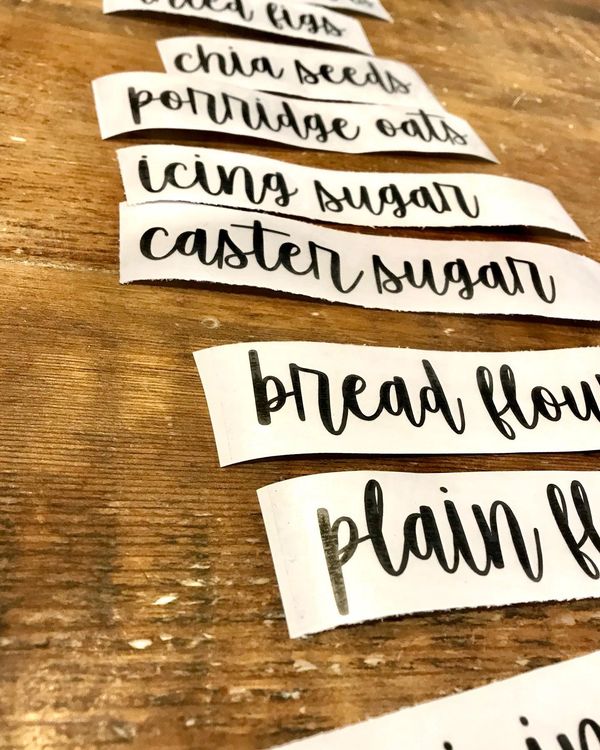 dried figs
chia seeds
porridge oats
icing sugar
caster sugar
bread flou
plain fl